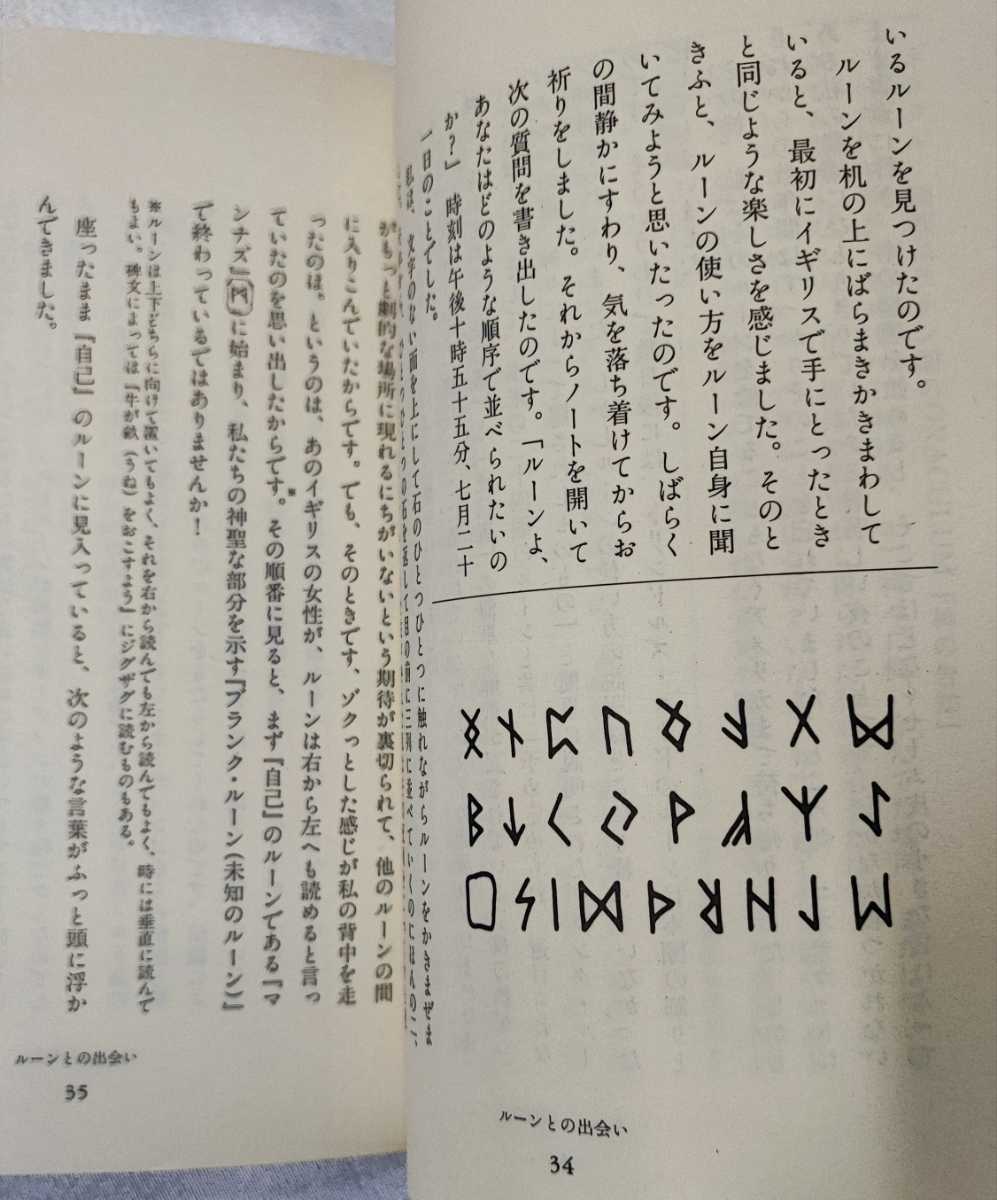 いるルーンを見つけたのです。
ルーンを机の上にばらまきかきまわして
いると、最初にイギリスで手にとったとき
と同じような楽しさを感じました。そのと
きふと、ルーンの使い方をルーン自身に聞
いてみようと思いたったのです。しばらく
の間静かにすわり、気を落ち着けてからお
祈りをしました。それからノートを開いて
次の質問を書き出したのです。「ルーンよ、
あなたはどのような順序で並べられたいの
か?」時刻は午後十時五十五分、七月二十
一日のことでした。
私は、文字のない面を上にして石のひとつひとつに触れながらルーンをかきまぜま
の石を返して目の前に三列に並べていくのにほんの二、
ᛜ ᚾ ᛈ ᚢ ᛟ ᚨ ᚷ ᛗ
ᛒ ᛏ ᚲ ᛃ ᚹ ᚠ ᛉ ᛇ
ᛋ ᛁ ᛞ ᚦ ᚱ ᚺ ᛚ ᛖ
ルーンとの出会い
34
がもっと劇的な場所に現れるにちがいないという期待が裏切られて、他のルーンの間
に入りこんでいたからです。でも、そのときです、ゾクっとした感じが私の背中を走
ったのは。というのは、あのイギリスの女性が、ルーンは右から左へも読めると言っ
ていたのを思い出したからです。※その順番に見ると、まず『自己』のルーンである『マ
ンナズ』(ᛗ)に始まり、私たちの神聖な部分を示す『ブランク・ルーン(未知のルーン)』
で終わっているではありませんか!
※ルーンは上下どちらに向けて置いてもよく、それを右から読んでも左から読んでもよく、時には垂直に読んで
もよい。碑文によっては「牛が畝(うね)をおこすよう」にジグザグに読むものもある。
座ったまま『自己』のルーンに見入っていると、次のような言葉がふっと頭に浮か
んできました。
ルーンとの出会い
35